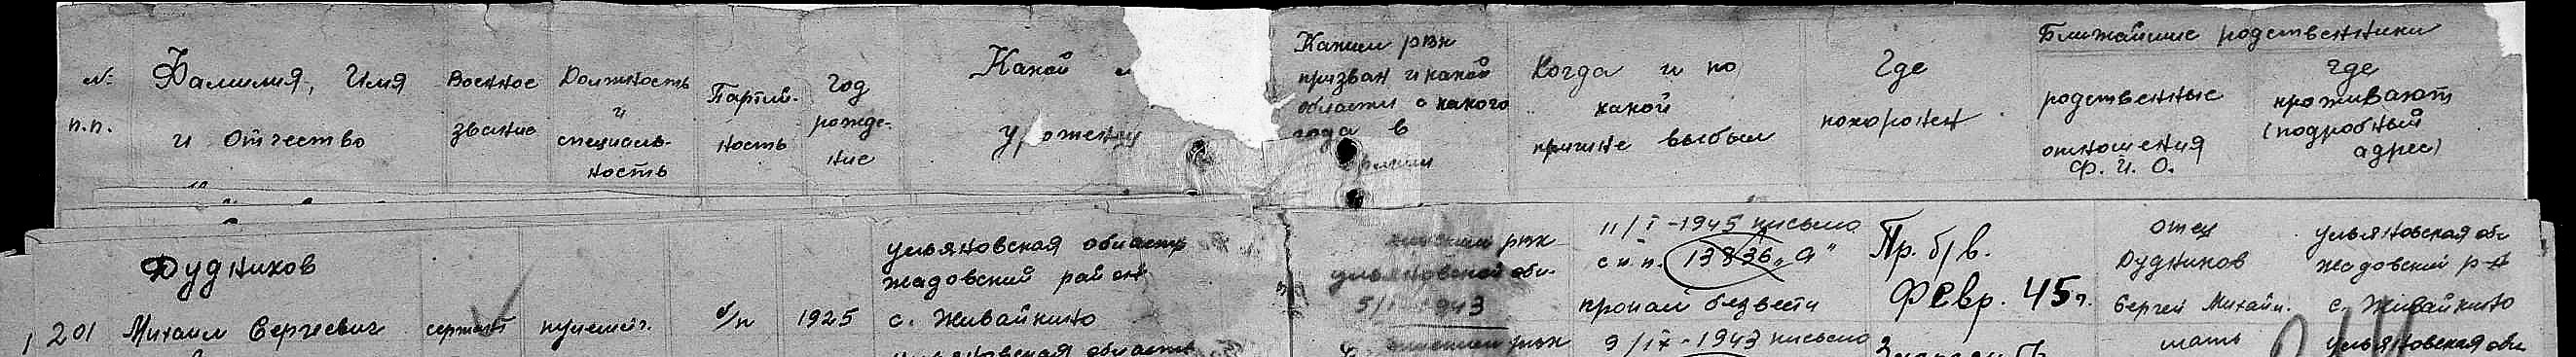 № п.п.
Фамилия, Имя
и Отчество
Военное
звание
Должность
и
специаль-
ность
Партий-
ность
Год
рожде-
ние
Какой
уроженец
Каким рвк
призван и какой
области с какого
года в
армии
Когда и по
какой
причине выбыл
Где
похоронен
Ближайшие родственники
родственные
отношения
Ф. И. О.
где
проживают
(подробный
адрес)
1201
Дудников
Михаил Сергеевич
сержант
пулемёт.
б/п
1925
ульяновская область
жадовский район
с. Живайкино
рвк
ульяновской обл.
1943
11/I-1945 письмо
с п.п. 13836 „а"
пропал безвести
Пр. б/в.
Февр. 45г.
отец
Дудников
Сергей Михайл.
ульяновская обл
жадовский р-н
с. Живайкино
ульяновская область
рвк
9/IX-1943 письмо
мать
ульяновская обл